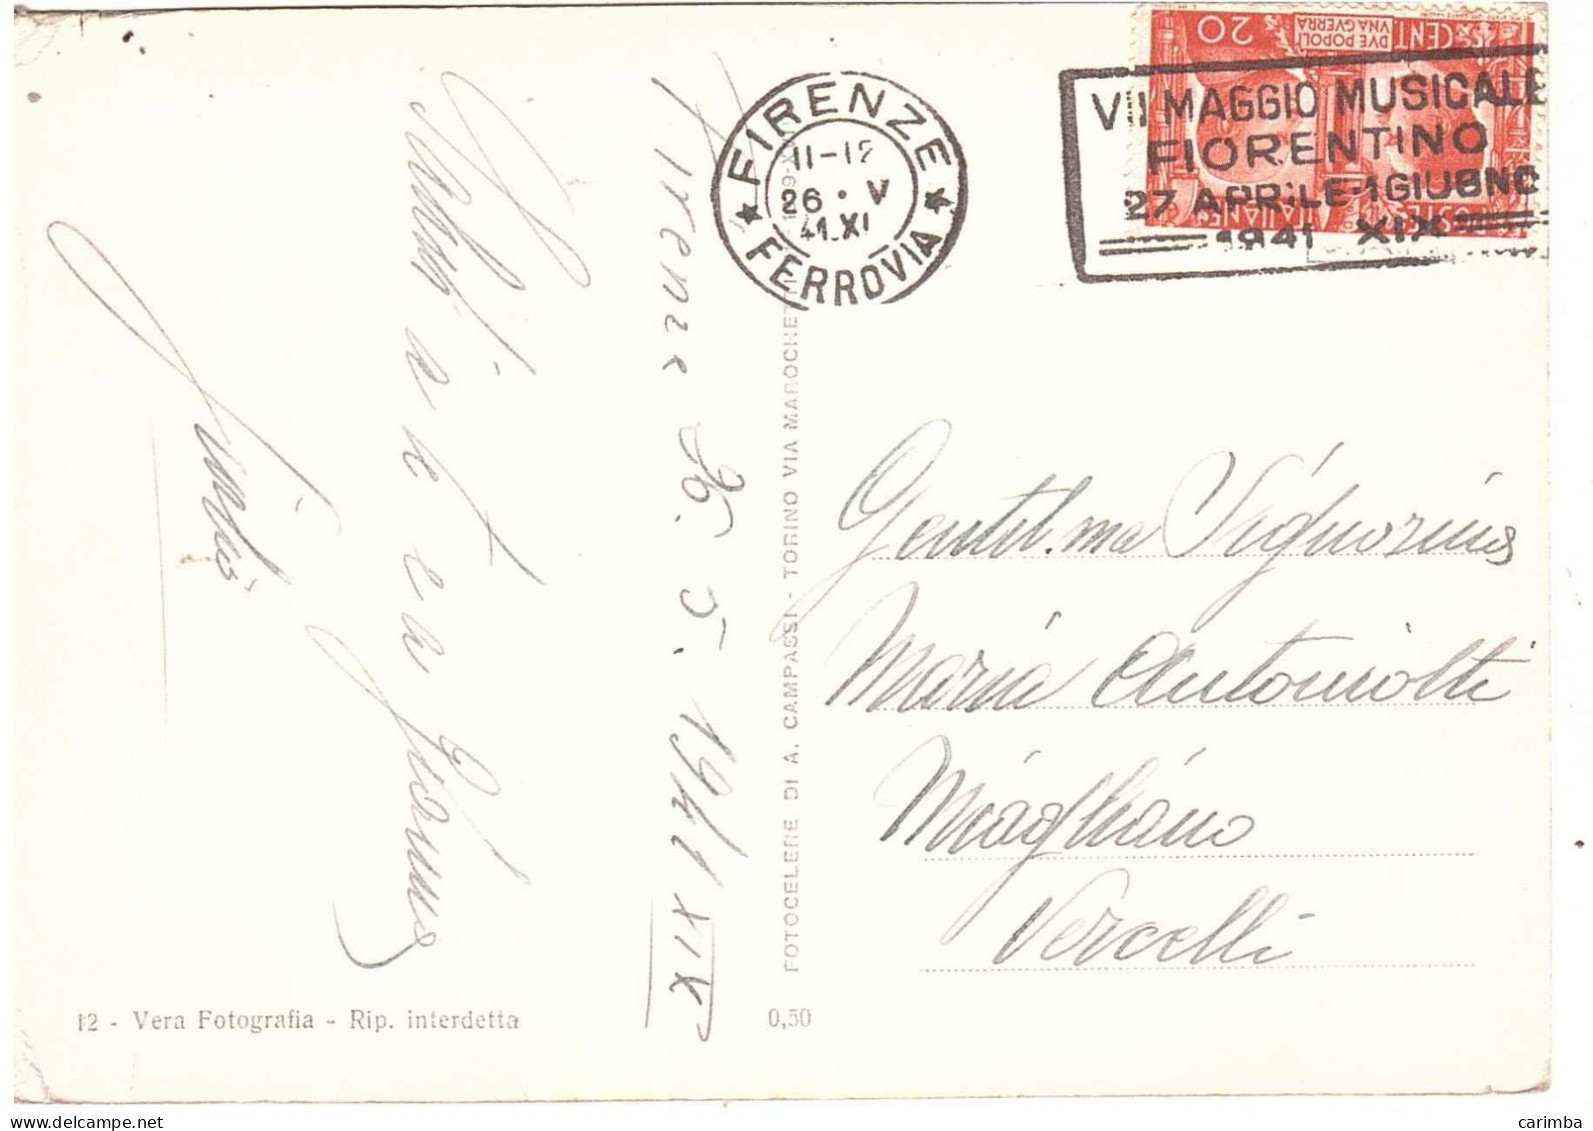 FIRENZE
11-12
26 · V
41.XI
FERROVIA
20
CENT
DVE POPOLI
VNA GVERRA
VII MAGGIO MUSICALE
FIORENTINO
27 APRILE-1 GIUGNO
1941 XIX
Firenze 26. 5. 1941 XIX
FOTOCELERE DI A. CAMPASSI - TORINO VIA MAROCHETTI
Gentil.ma Signorina
Maria Antoniotti
Miagliano
Vercelli
12 - Vera Fotografia - Rip. interdetta
0,50